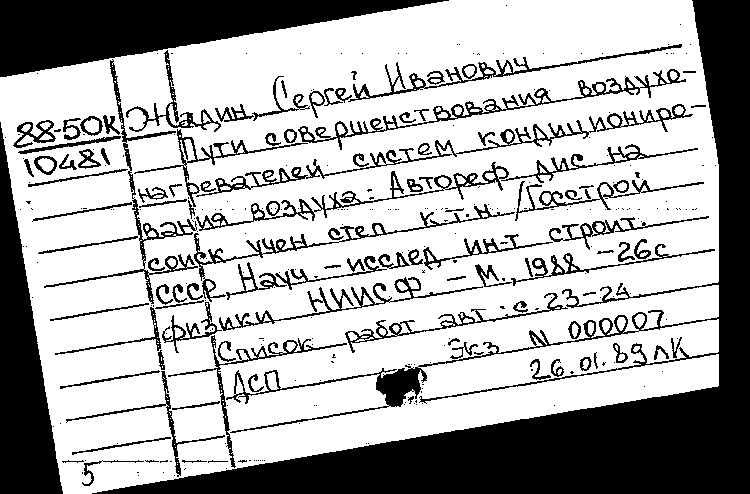 88-50К
10481
Жадин, Сергей Иванович
Пути совершенствования воздухо-
нагревателей систем кондициониро-
вания воздуха: Автореф дис на
соиск учен степ к.т.н. /Госстрой
СССР, Науч.-исслед. ин-т строит.
физики НИИСФ. - М., 1988 - 26с
Список работ авт.: с. 23-24
ДСП Экз N 000007
26.01.89 лК
5